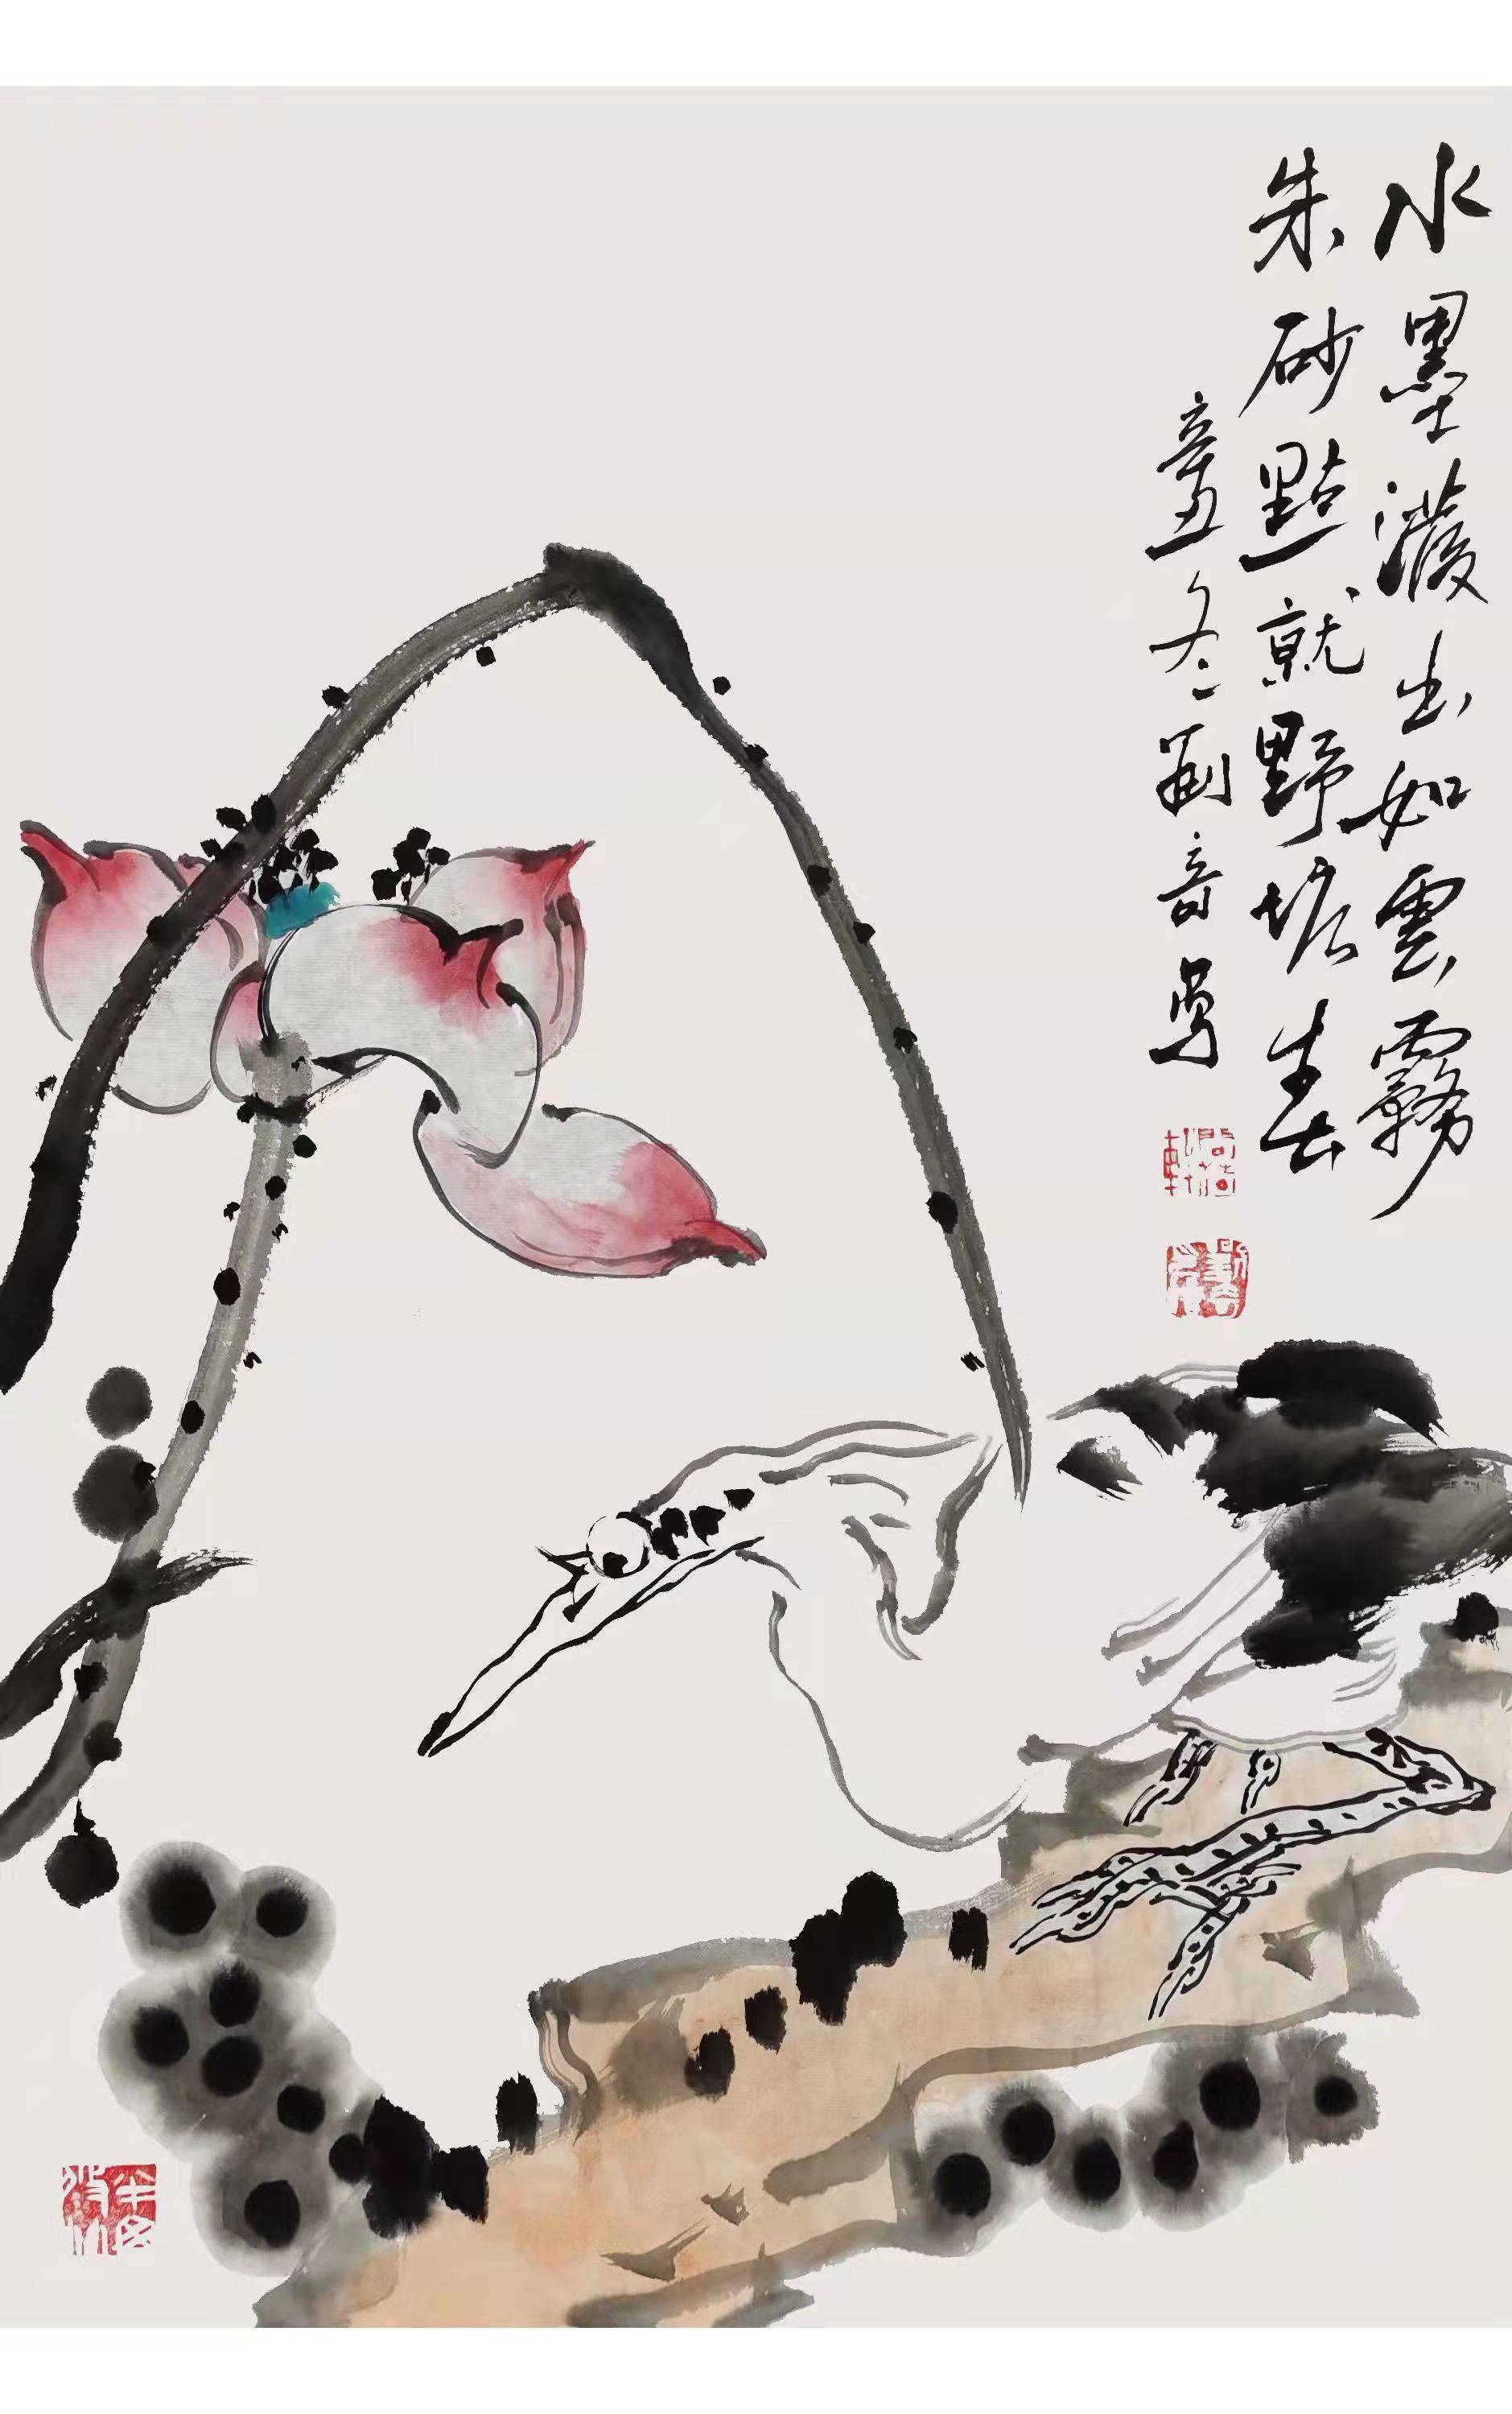 水墨潑出如雲霧
朱砂點就野塘春
辛丑冬